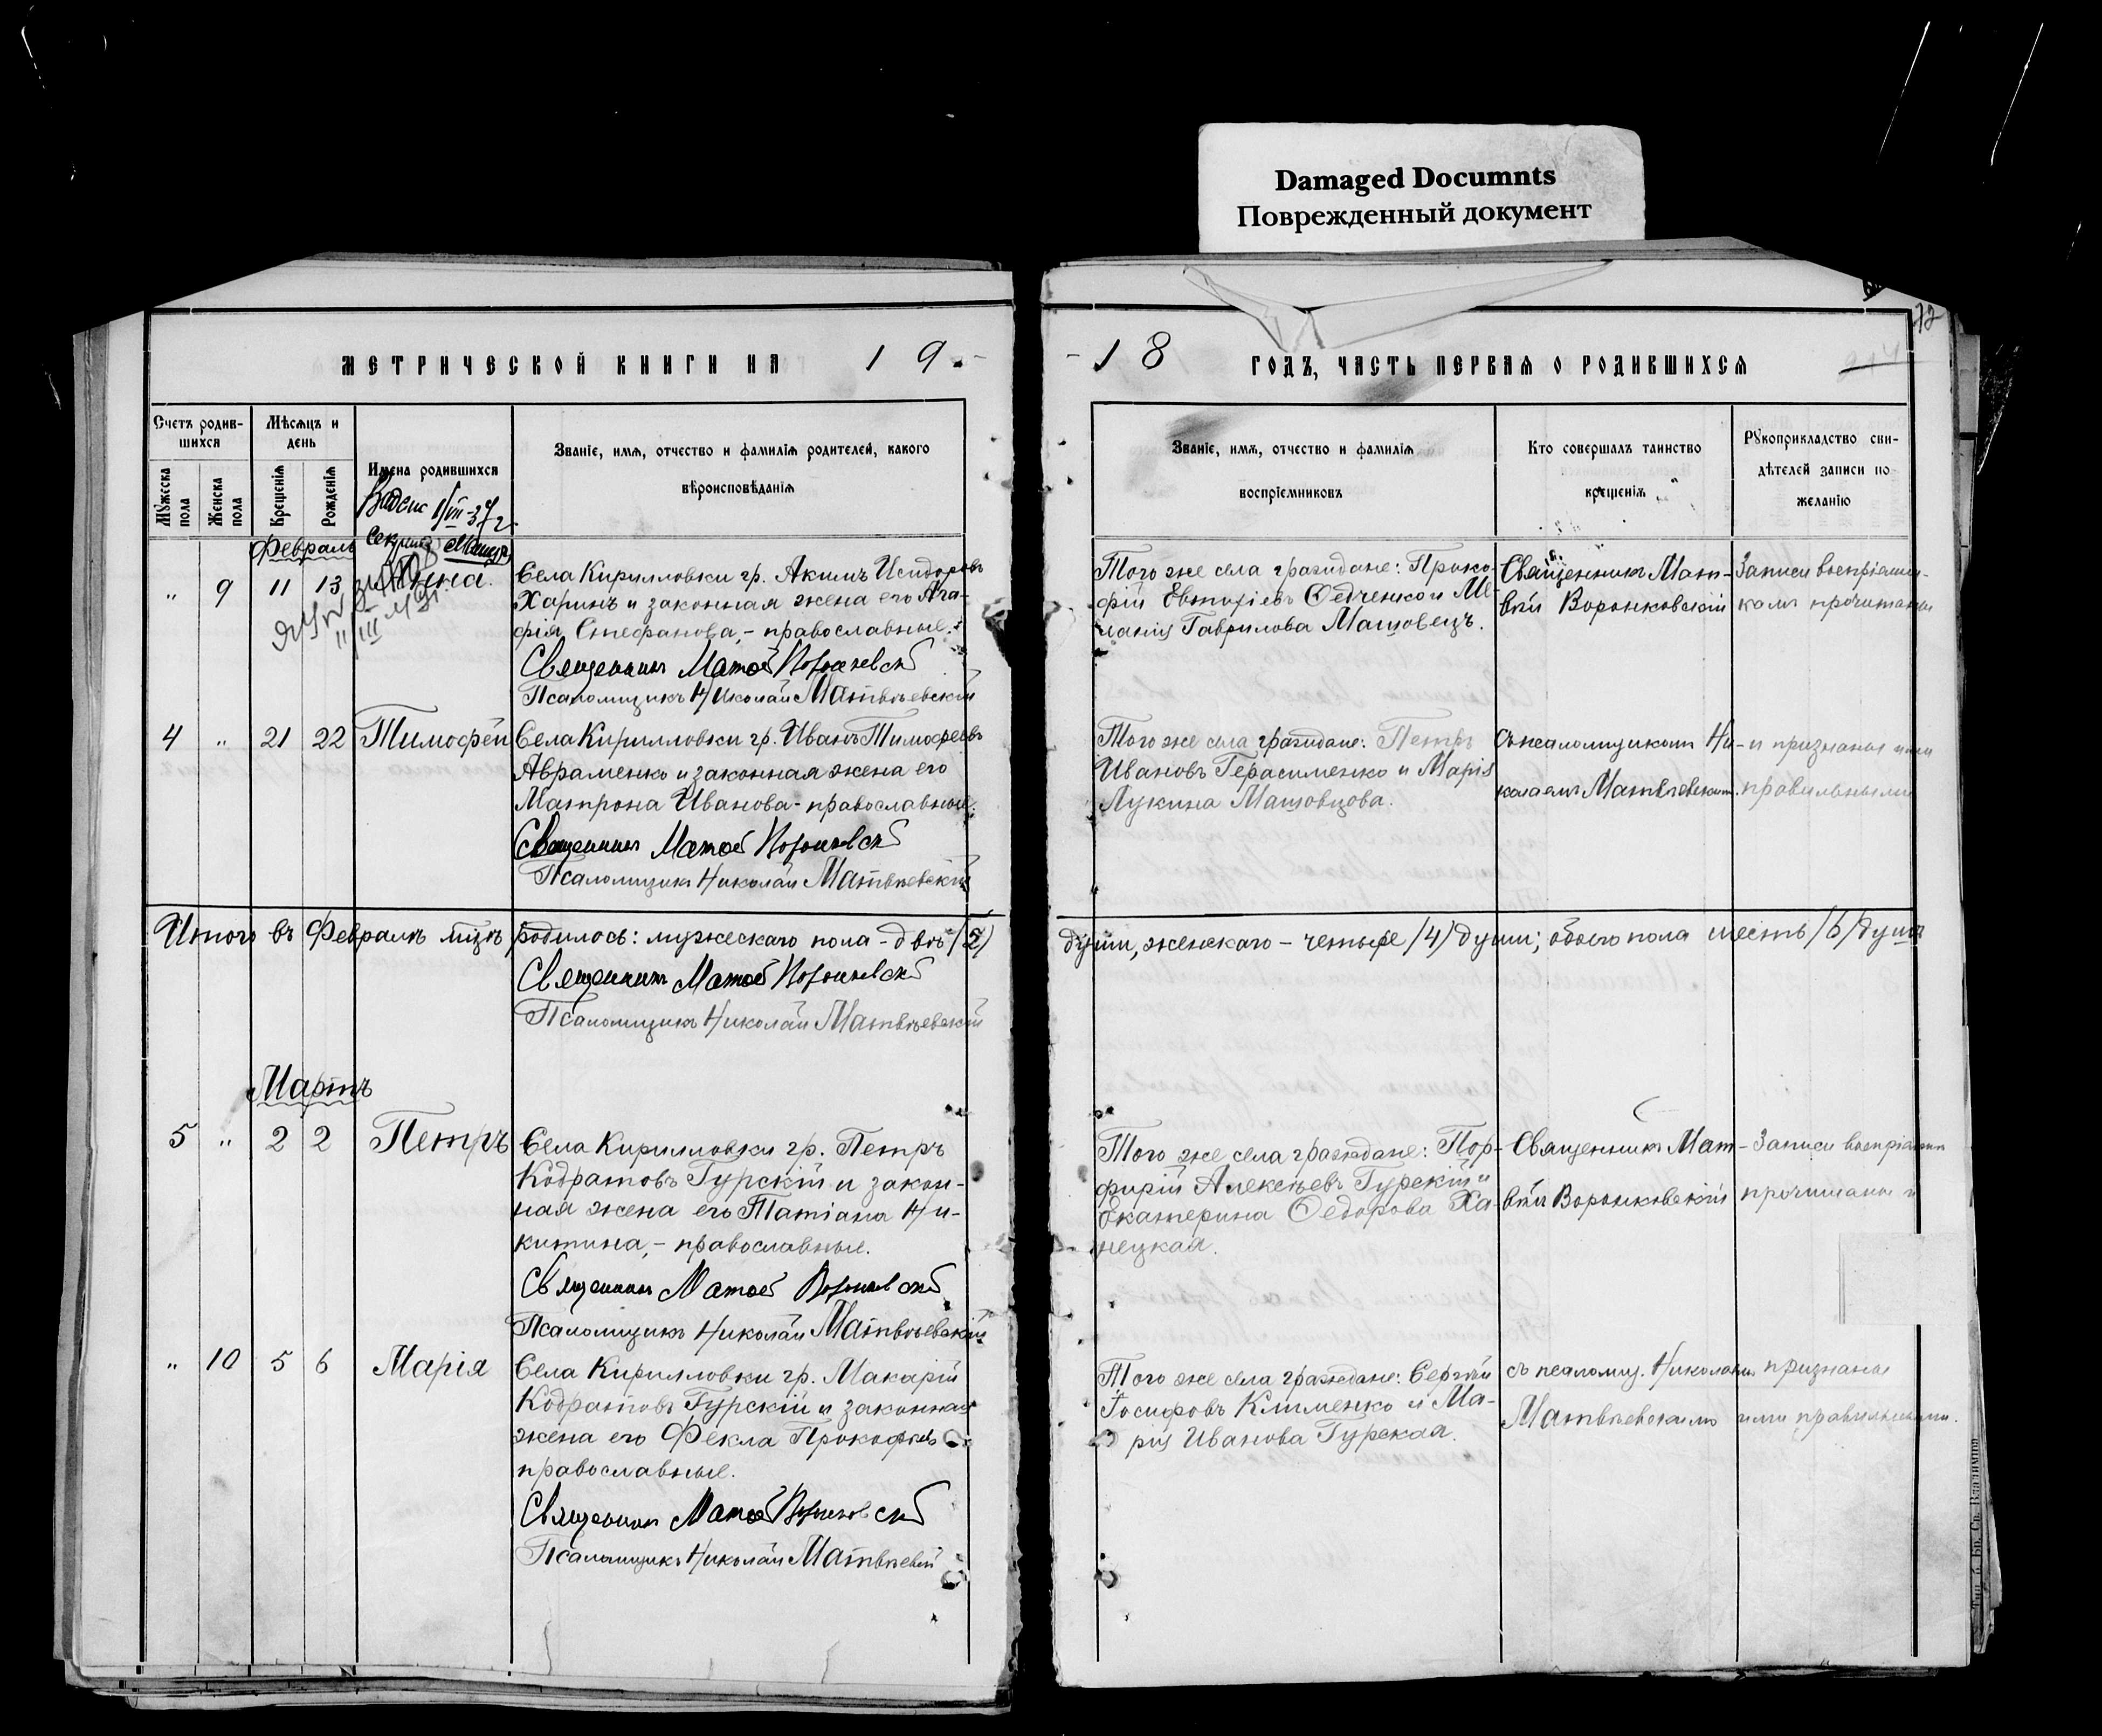 Damaged Documnts
Поврежденный документ
МЕТРИЧЕСКОЙ КНИГИ НА 1 9
Счетъ родив-
шихся
Мѣсяцъ и
день
Имена родившихся
Званіе, имя, отчество и фамилія родителей, какого
вѣроисповѣданія
Мужеска
пола
Женска
пола
Крещенія
Рожденія
Февраль
" 9 11 13 Анна.
Села Кирилловки гр. Акимъ Исидоровъ
Харинъ и законная жена его Ага-
фія Стефанова, - православные.
Священникъ Матвѣй Воронковскій
Псаломщикъ Николай Матвѣевскій
4 " 21 22 Тимофей
Села Кирилловки гр. Иванъ Тимофеевъ
Авраменко и законная жена его
Матрона Иванова - православные.
Священникъ Матвѣй Воронковскій
Псаломщикъ Николай Матвѣевскій
Итого въ Февралѣ м-цѣ родилось: мужескаго пола - двѣ /2/
Священникъ Матвѣй Воронковскій
Псаломщикъ Николай Матвѣевскій
Мартъ
5 " 2 2 Петръ
Села Кирилловки гр. Петръ
Кодратовъ Гурскій и закон-
ная жена его Татіана Ни-
китина, - православные.
Священникъ Матвѣй Воронковскій
Псаломщикъ Николай Матвѣевскій
" 10 5 6 Марія
Села Кирилловки гр. Макарій
Кодратовъ Гурскій и законная
жена его Фекла Прокофьева
православные.
Священникъ Матвѣй Воронковскій
Псаломщикъ Николай Матвѣевскій
72
1 8 ГОДЪ, ЧАСТЬ ПЕРВАЯ О РОДИВШИХСЯ
Званіе, имя, отчество и фамилія
воспріемниковъ
Кто совершалъ таинство
крещенія
Рукоприкладство сви-
дѣтелей записи по
желанію
Того же села граждане: Проко-
фій Евтихіевъ Федченко и Ме-
ланія Гаврилова Машовецъ.
Священникъ Мат-
вѣй Воронковскій
Записи воспріемни-
камъ прочитаны
Того же села граждане: Петръ
Ивановъ Герасименко и Марія
Лукина Машовцова.
Съ псаломщикомъ Ни-
колаемъ Матвѣевскимъ.
и признаны ими
правильными
души, женскаго - четыре /4/ души; обоего пола шесть /6/ душъ
Того же села граждане: Пор-
фирій Алексѣевъ Гурскій и
Екатерина Ѳедорова Ха-
нецкая.
Священникъ Мат-
вѣй Воронковскій
Записи воспріемн
прочитаны и
Того же села граждане: Сергѣй
Іосифовъ Клименко и Ма-
рія Иванова Гурская.
съ псаломщ. Николаемъ
Матвѣевскимъ
признаны
ими правильными.
Тип. б. Бр. Св. Владиміра